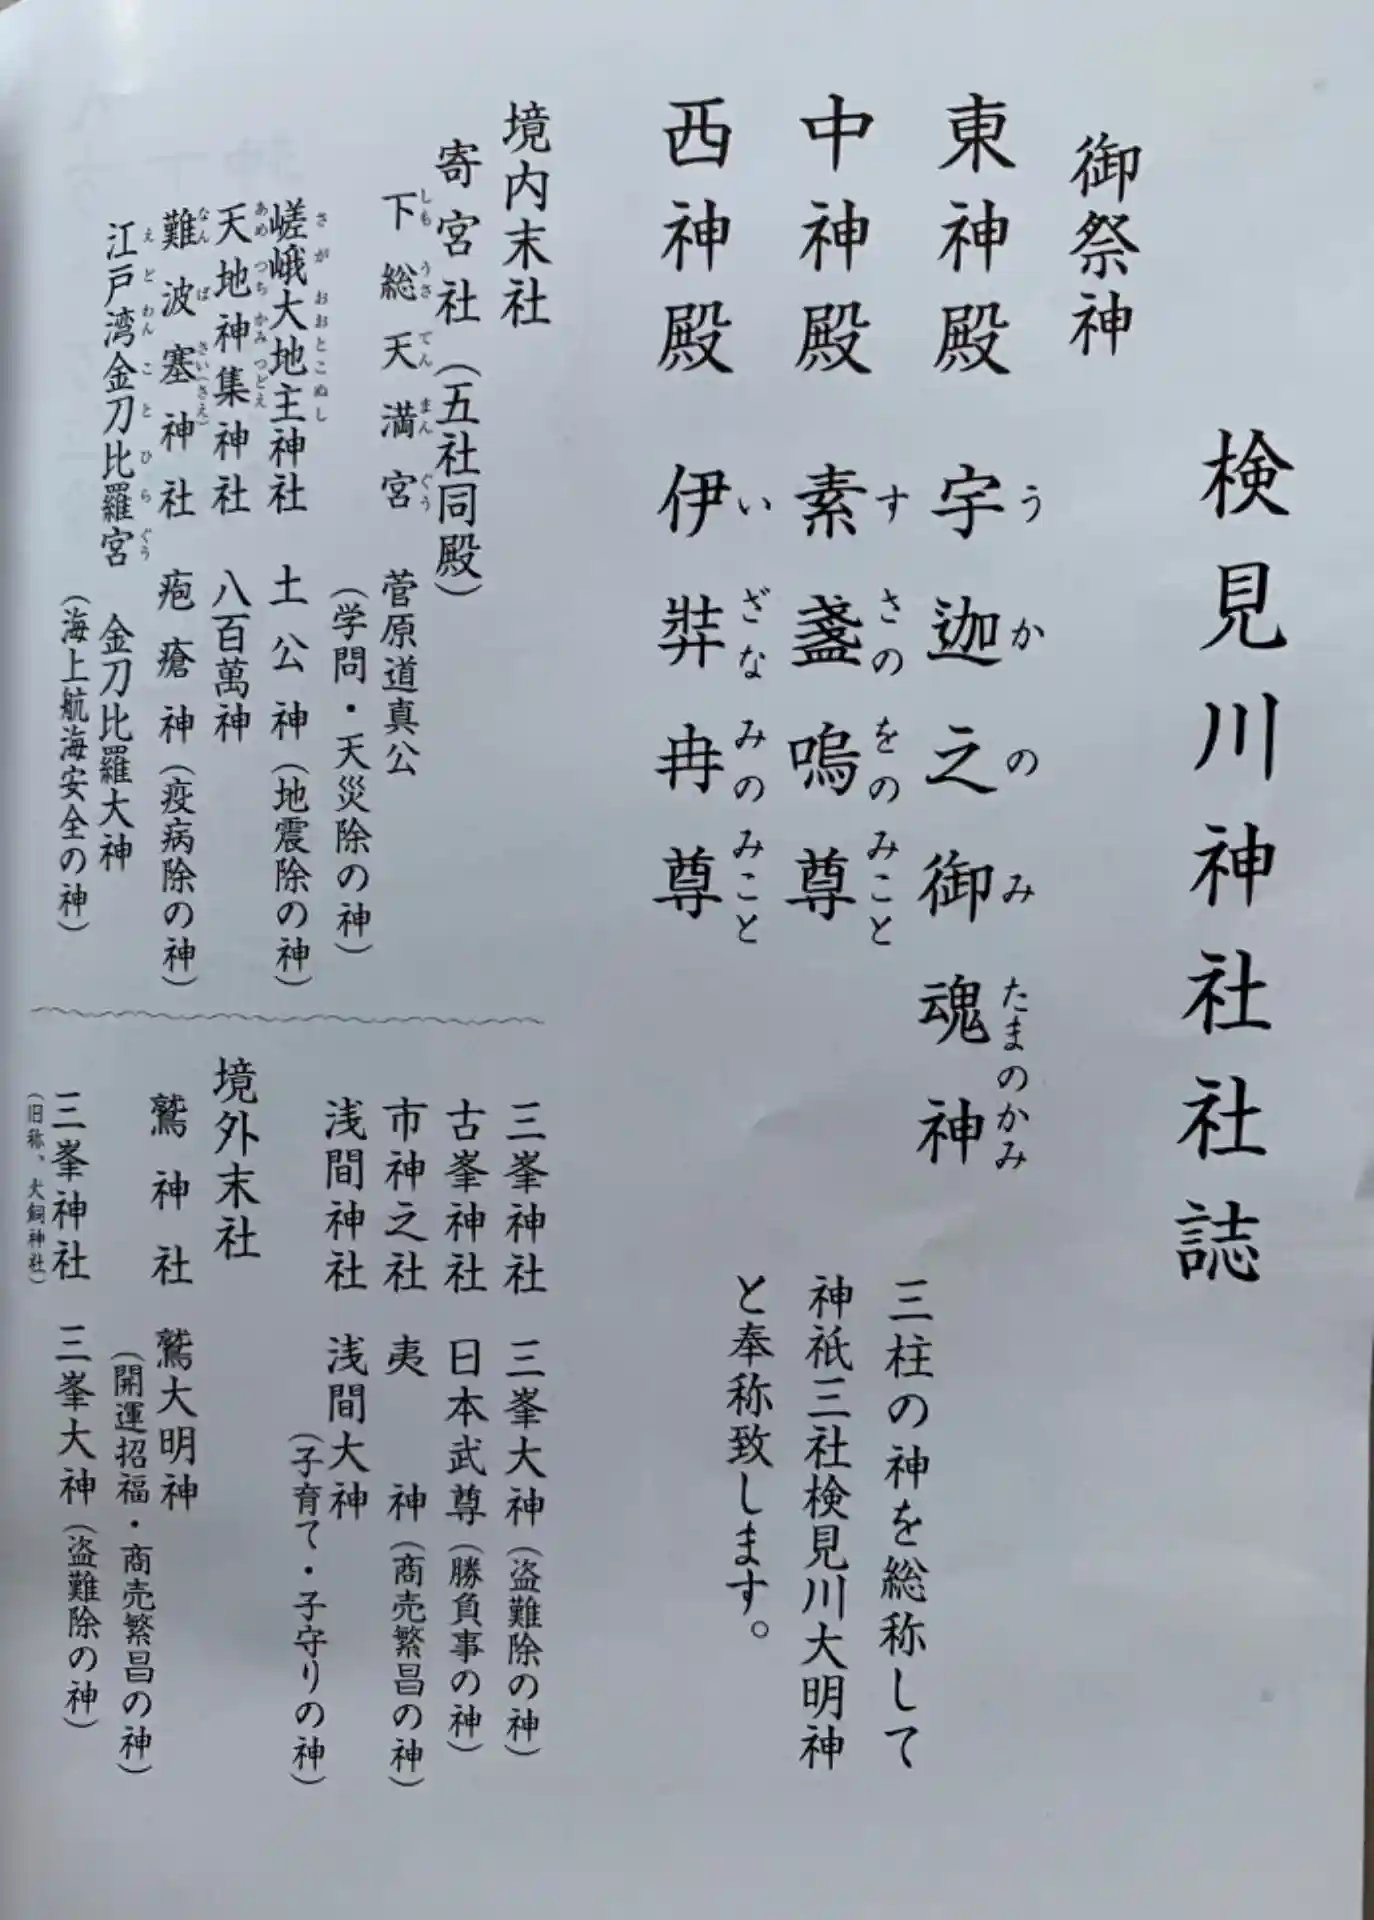 検見川神社社誌
御祭神
東神殿 宇迦之御魂神
うかのみたまのかみ
中神殿 素盞嗚尊
すさのをのみこと
西神殿 伊弉冉尊
いざなみのみこと
三柱の神を総称して
神祇三社検見川大明神
と奉称致します。
境内末社
寄宮社(五社同殿)
下総天満宮 菅原道真公
しもうさてんまんぐう
(学問・天災除の神)
嵯峨大地主神社 土公神(地震除の神)
さがおおとこぬし
天地神集神社 八百萬神
あめつちかみつどえ
難波塞神社 疱瘡神(疫病除の神)
なんばさい(さえ)
江戸湾金刀比羅宮 金刀比羅大神
えどわんことひらぐう
(海上航海安全の神)
三峯神社 三峯大神(盗難除の神)
古峯神社 日本武尊(勝負事の神)
市神之社 夷神(商売繁昌の神)
浅間神社 浅間大神
(子育て・子守りの神)
境外末社
鷲神社 鷲大明神
(開運招福・商売繁昌の神)
三峯神社 三峯大神(盗難除の神)
(旧称、犬飼神社)